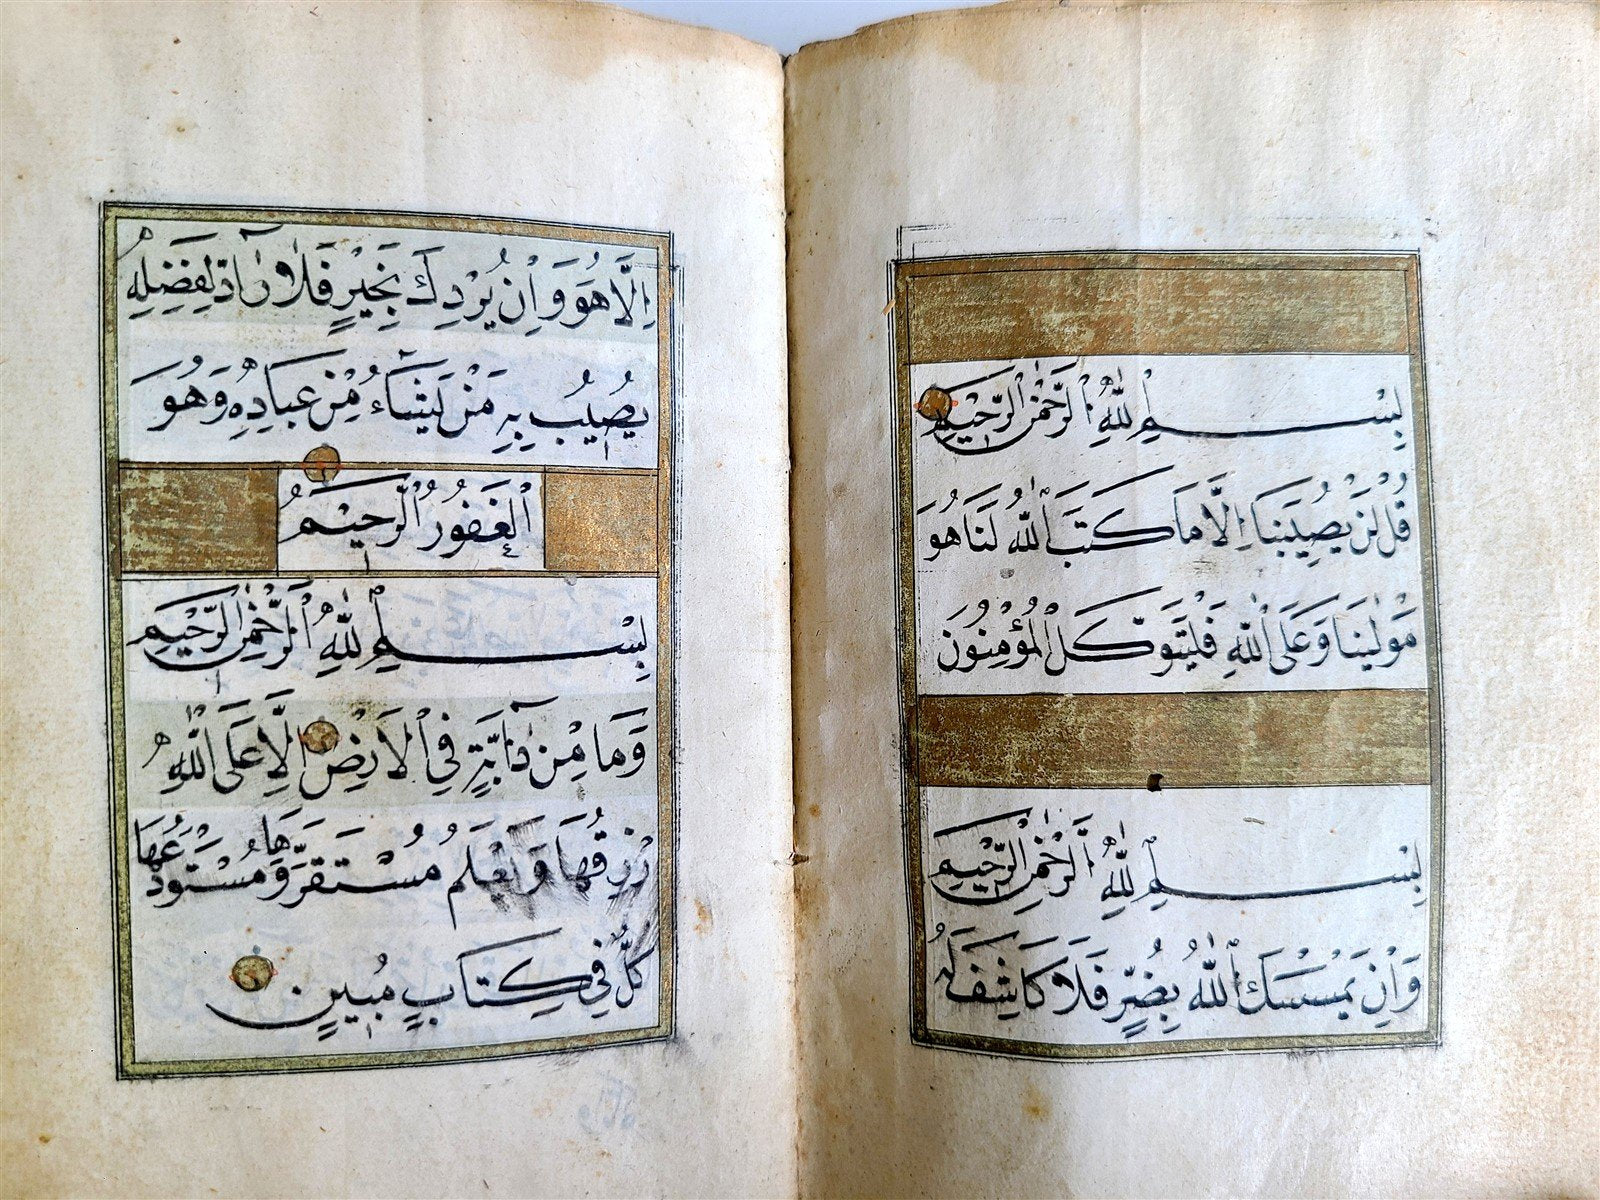 بِسْمِ اللّٰهِ الرَّحْمٰنِ الرَّحِيْمِ
قُلْ لَنْ يُصِيْبَنَا اِلَّا مَا كَتَبَ اللّٰهُ لَنَا هُوَ
مَوْلٰينَا وَعَلَى اللّٰهِ فَلْيَتَوَكَّلِ الْمُؤْمِنُوْنَ
بِسْمِ اللّٰهِ الرَّحْمٰنِ الرَّحِيْمِ
وَاِنْ يَمْسَسْكَ اللّٰهُ بِضُرٍّ فَلَا كَاشِفَ لَهُ
اِلَّا هُوَ وَاِنْ يُرِدْكَ بِخَيْرٍ فَلَا رَآدَّ لِفَضْلِهِ
يُصِيْبُ بِهِ مَنْ يَشَآءُ مِنْ عِبَادِهِ وَهُوَ
الْغَفُوْرُ الرَّحِيْمُ
بِسْمِ اللّٰهِ الرَّحْمٰنِ الرَّحِيْمِ
وَمَا مِنْ دَآبَّةٍ فِي الْاَرْضِ اِلَّا عَلَى اللّٰهِ
رِزْقُهَا وَيَعْلَمُ مُسْتَقَرَّهَا وَمُسْتَوْدَعَهَا
كُلٌّ فِي كِتَابٍ مُبِيْنٍ